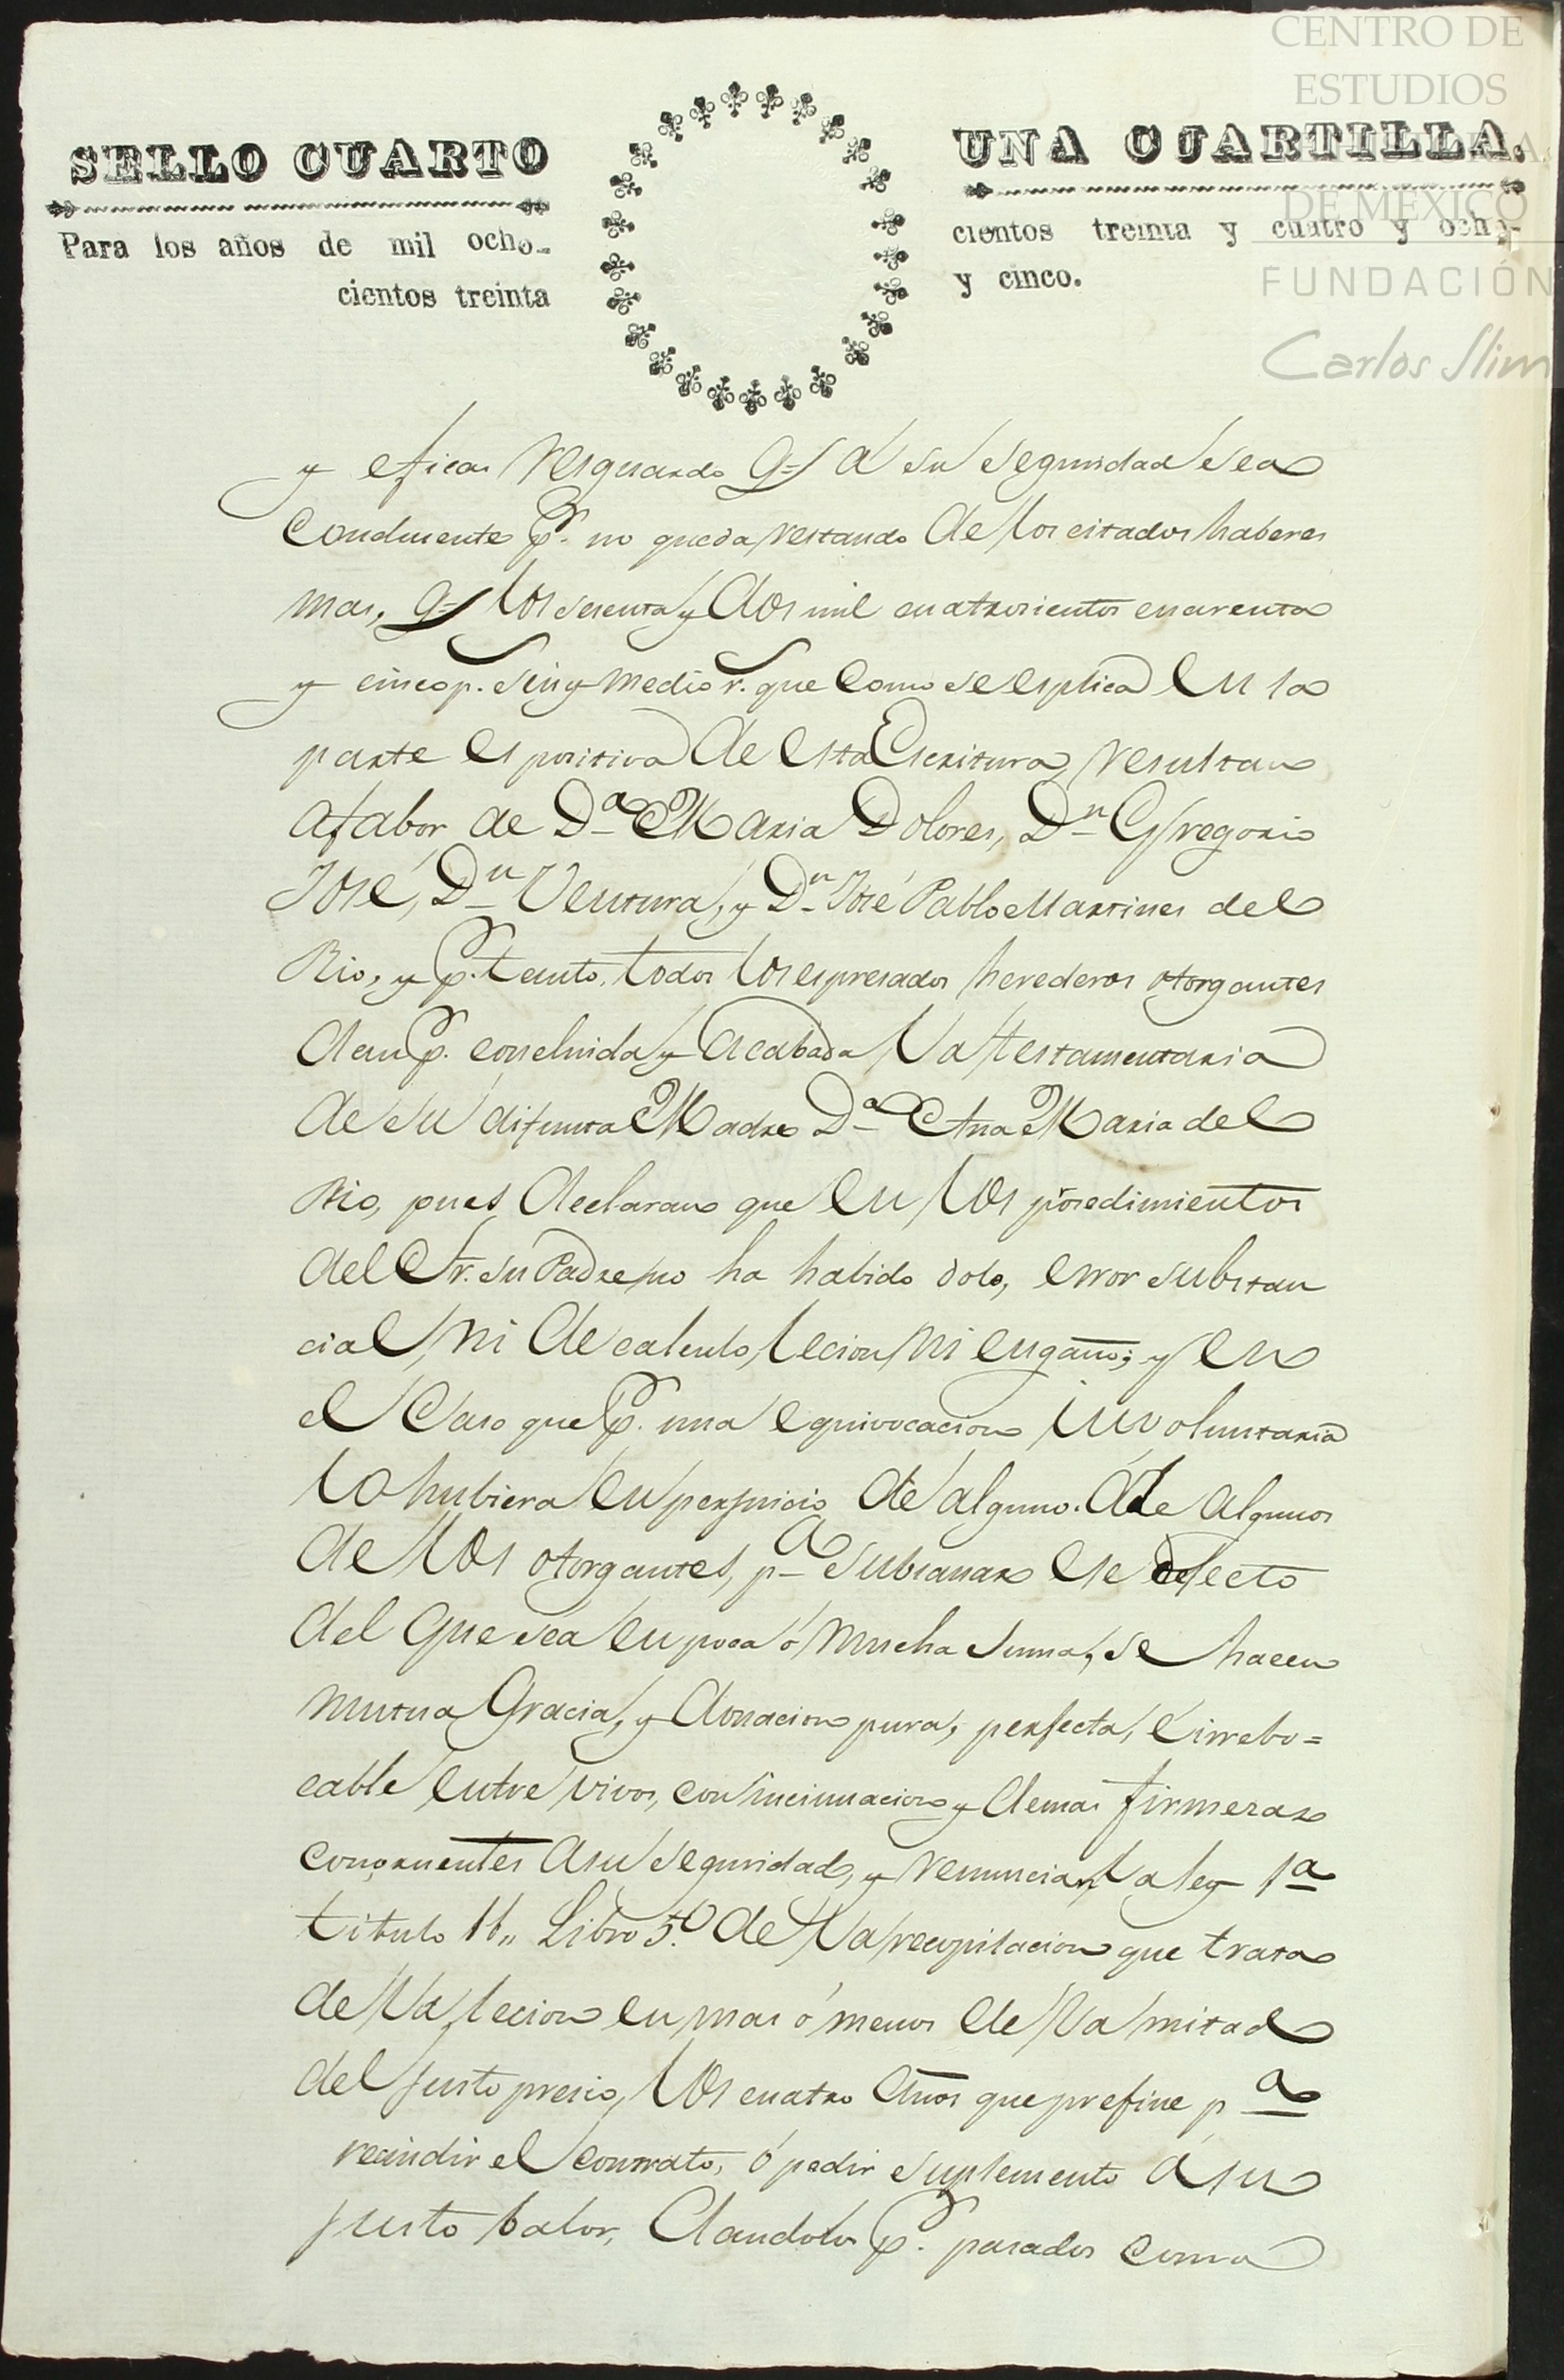 CENTRO DE
ESTUDIOS
DE MÉXICO
FUNDACIÓN
Carlos Slim
SELLO CUARTO
UNA CUARTILLA.
Para los años de mil ocho-
cientos treinta
cientos treinta y cuatro y ocho-
y cinco.
y eficas resguardo q.e á su seguridad sea
conducente p.r no queda restando de los citados haberes
mas, q.e los sesenta y dos mil cuatrocientos cuarenta
y cinco p. seis y medio r. que como se esplica en la
parte espositiva de esta Escritura, resultan
afabor de D.a Maria Dolores, D.n Gregorio
José, D.n Ventura, y D.n José Pablo Martines del
Rio, y p.r tanto, todos los espresados herederos otorgantes
dan p.r concluida y acabada la testamentaria
de su difunta Madre D.a Ana Maria del
Rio, pues declaran que en los prosedimientos
del Sr. su Padre no ha habido dolo, error substan
cial, ni de calculo, lecion, ni engaño; y en
el caso que p.r una equivocacion involuntaria
lo hubiera en perjuicio de alguno. ó de algunos
de los otorgantes, p.a subsanar ese defecto
del que sea en poca ó mucha suma, se hacen
mutua Gracia, y donacion pura, perfecta, é irrebo=
cable entre vivos, con incinuacion y demas firmezas
congruentes asu seguridad, y renuncian la ley 1.a
titulo 11,, Libro 5.o de la recopilacion que trata
de la lecion en mas ó menos de la mitad
del justo presio, los cuatro años que prefine p.a
recindir el contrato, ó pedir suplemento á su
justo balor, dandolos p.r pasados como